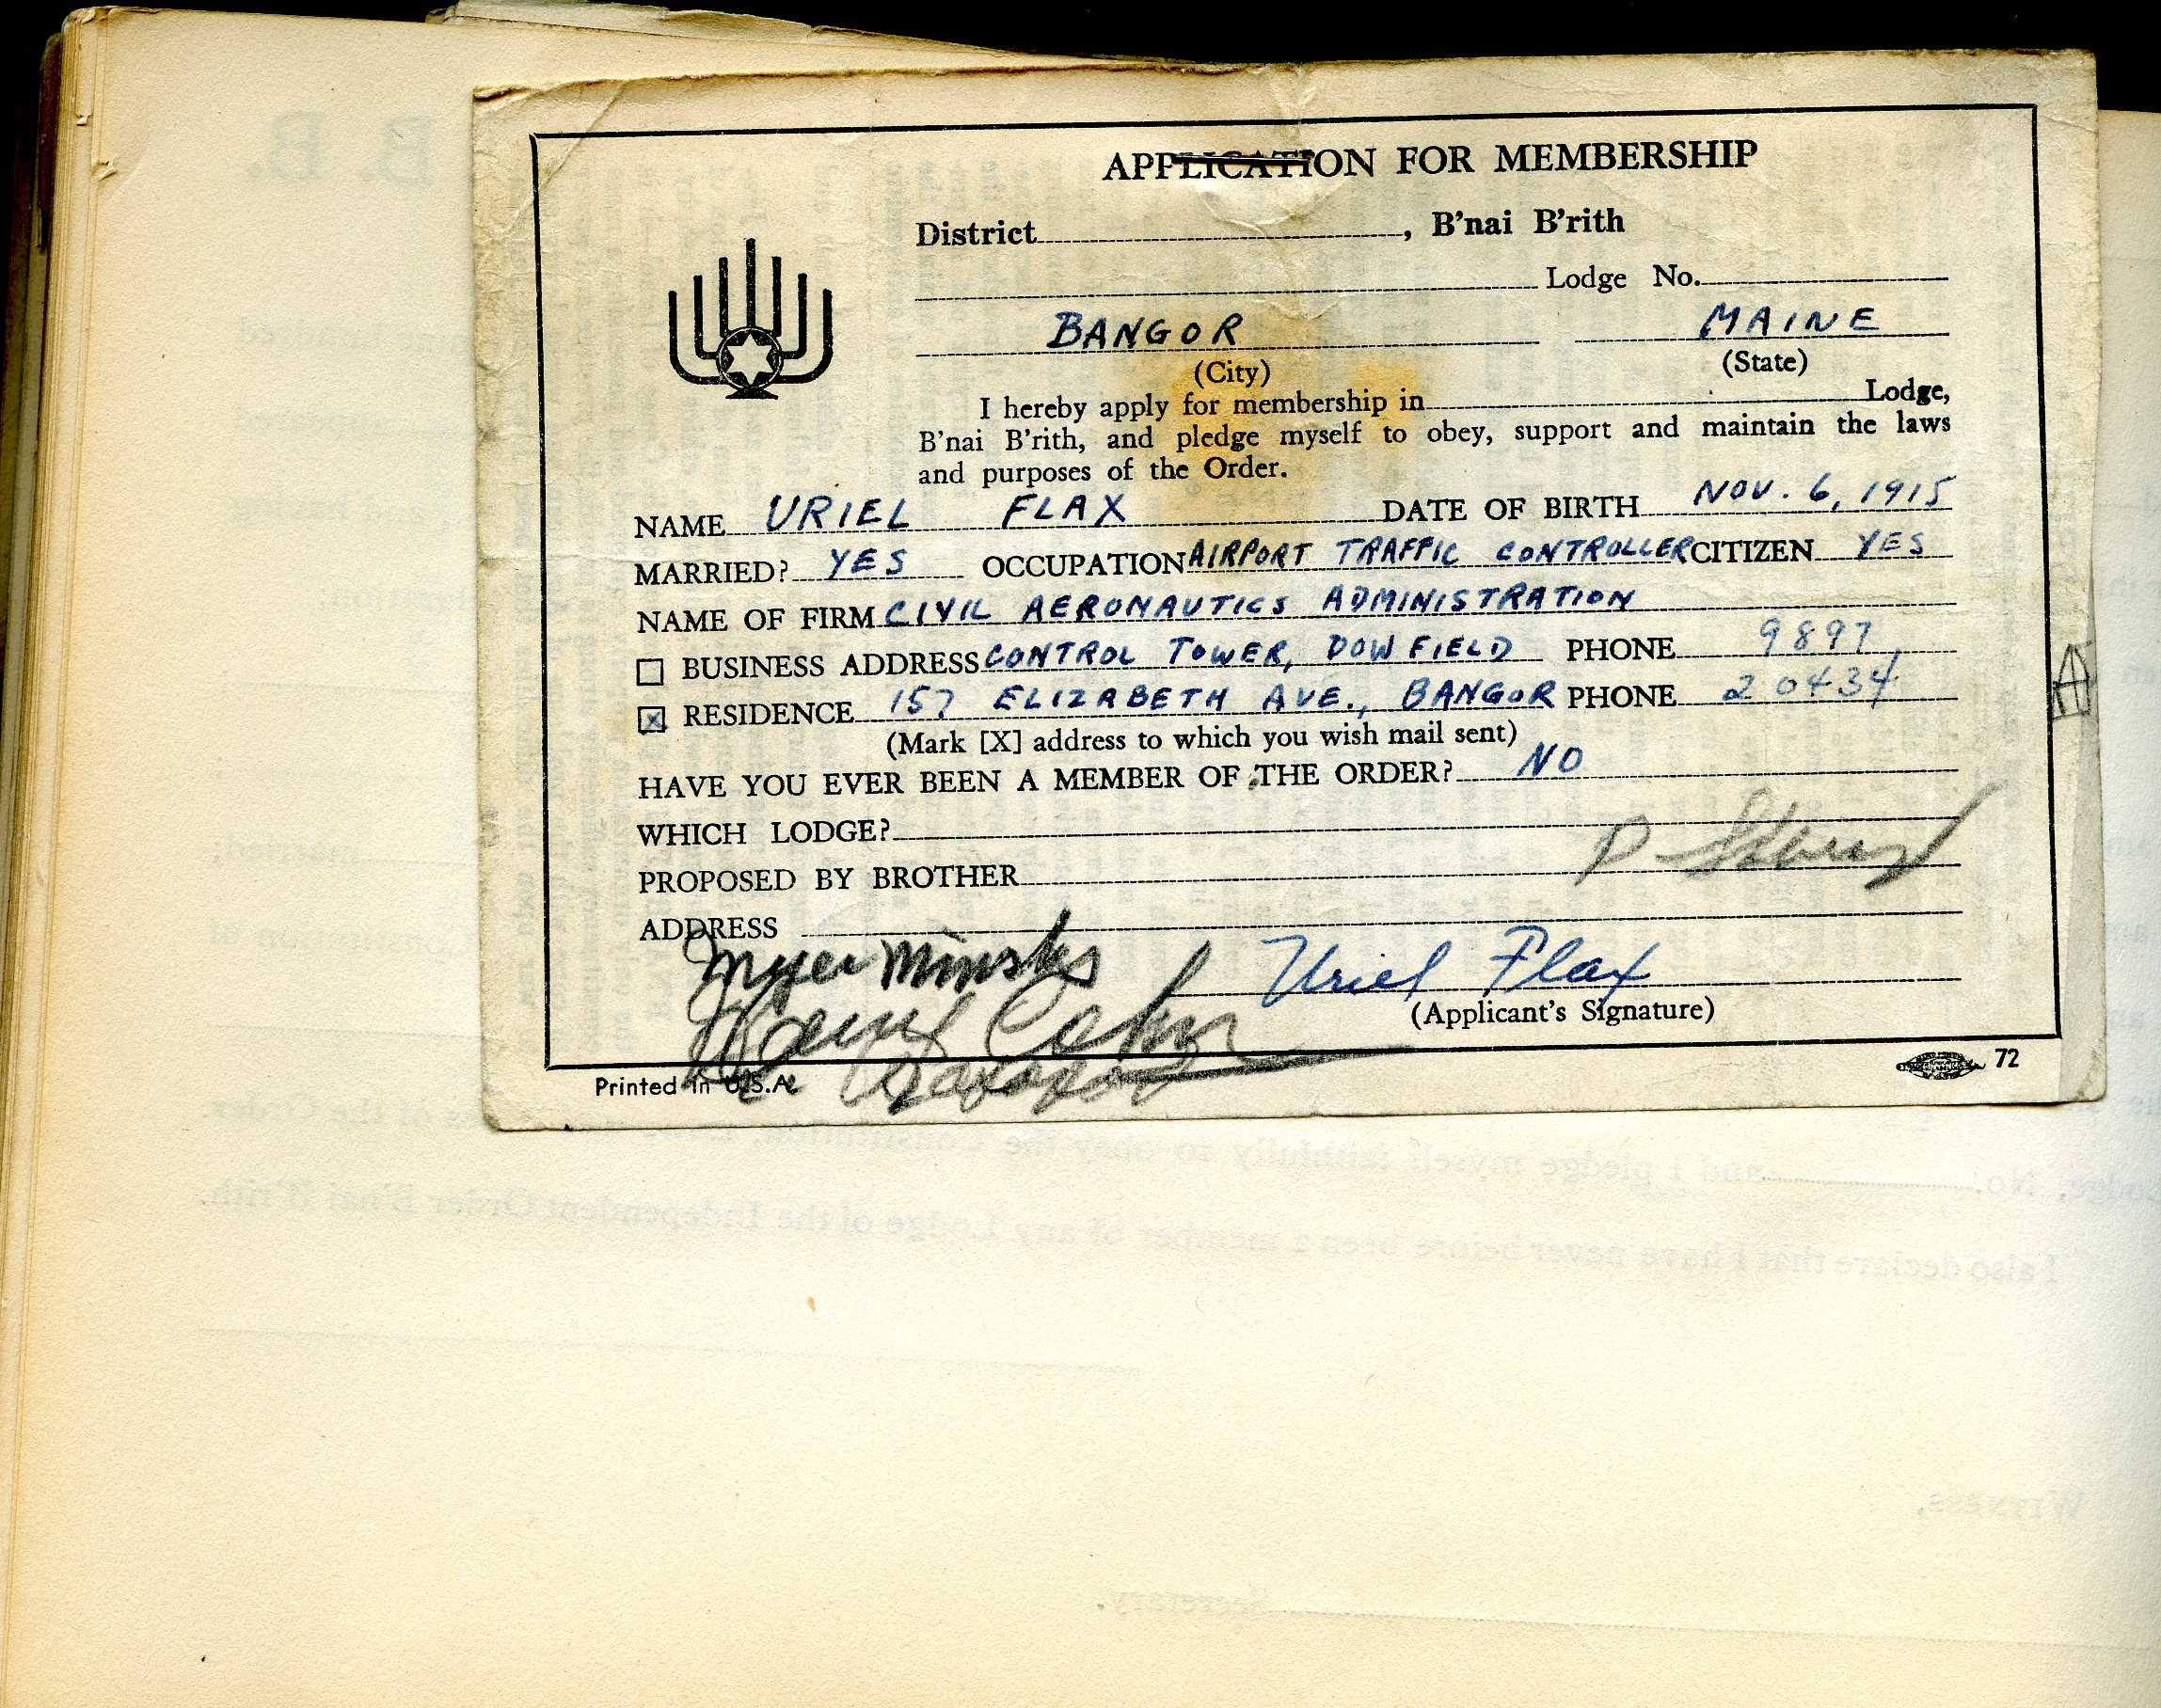 APPLICATION FOR MEMBERSHIP
District, B'nai B'rith
Lodge No.
BANGOR MAINE
(City) (State)
I hereby apply for membership in Lodge,
B'nai B'rith, and pledge myself to obey, support and maintain the laws
and purposes of the Order.
NAME URIEL FLAX DATE OF BIRTH NOV. 6, 1915
MARRIED? YES OCCUPATION AIRPORT TRAFFIC CONTROLLER CITIZEN YES
NAME OF FIRM CIVIL AERONAUTICS ADMINISTRATION
BUSINESS ADDRESS CONTROL TOWER, DOW FIELD PHONE 9897
RESIDENCE 157 ELIZABETH AVE., BANGOR PHONE 20434
(Mark [X] address to which you wish mail sent)
HAVE YOU EVER BEEN A MEMBER OF THE ORDER? NO
WHICH LODGE?
PROPOSED BY BROTHER
ADDRESS
Myer Minsky
Uriel Flax
(Applicant's Signature)
Cohen
Printed in U.S.A.
72
and I pledge myself faithfully to obey the Constitution, of the
Lodge, No.
I also declare that I have never before been a member of any Lodge of the Independent Order B'nai B'rith.
WITNESS,
Secretary.